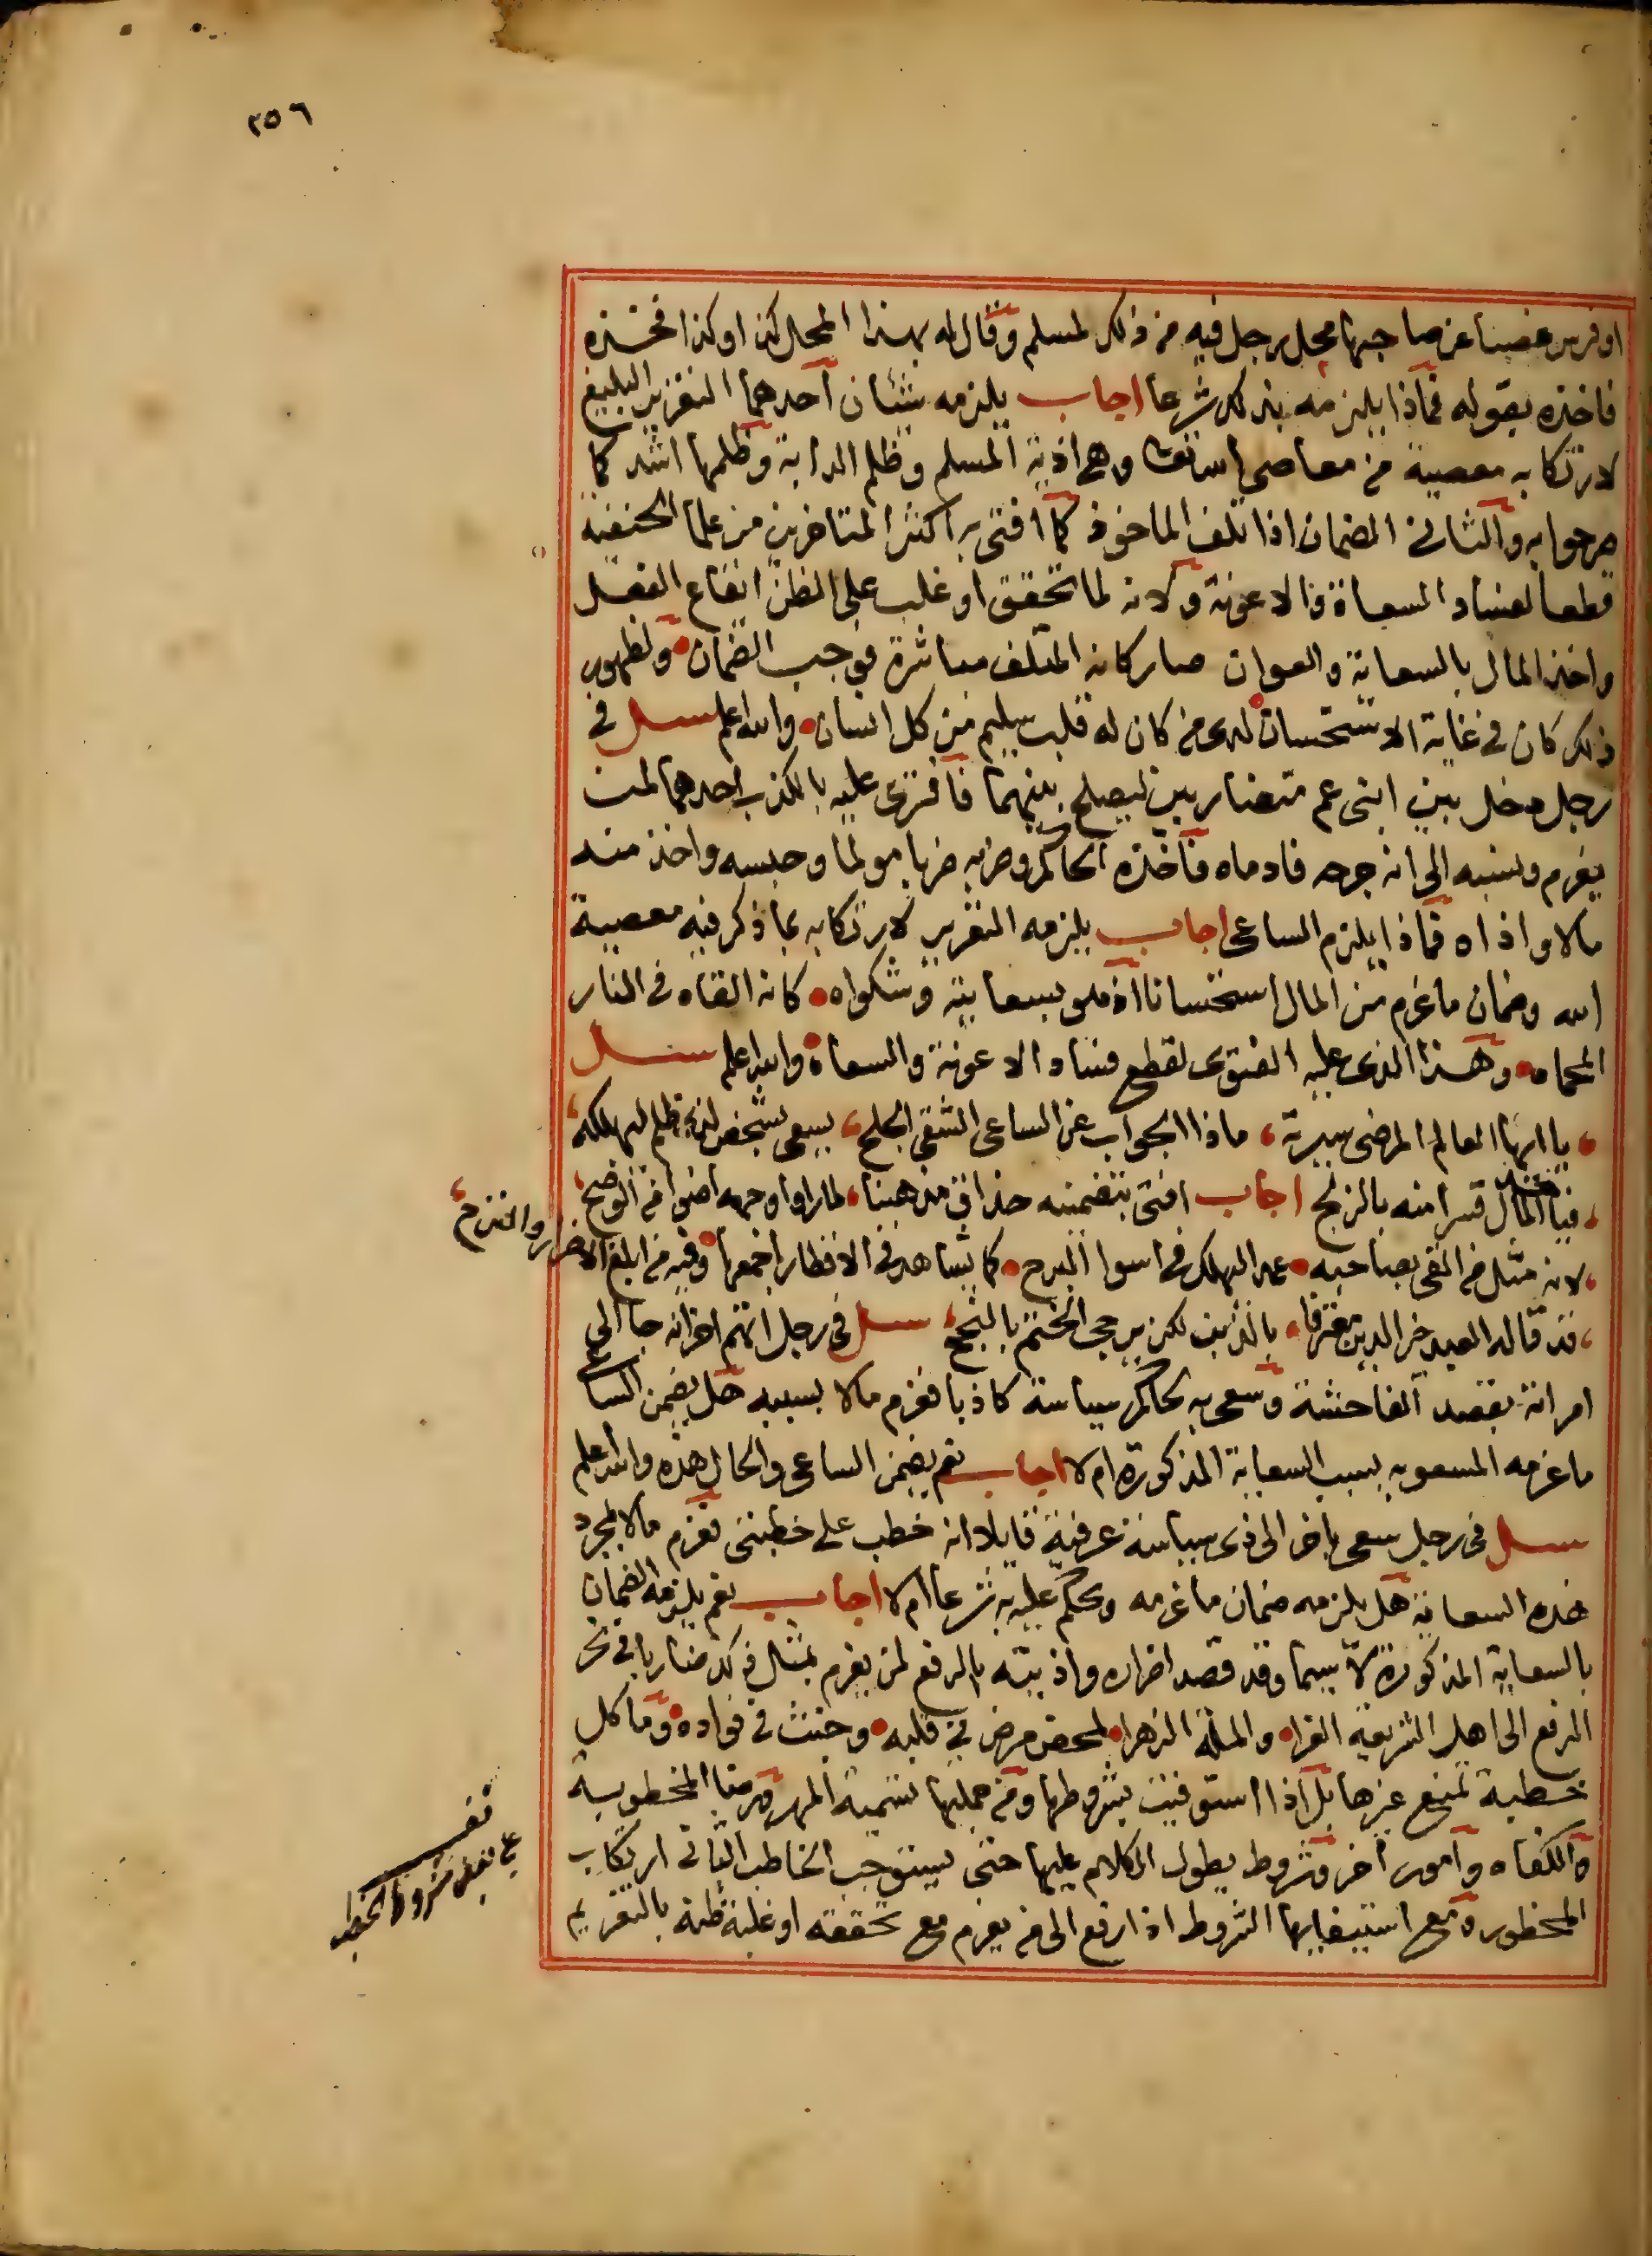 ٢٥٦
او فرس غصبا عن صاحبها محل رجل فيه من ذلك لمسلم وقال له بهذا المحل كذا وكذا فخذه
فاخذه بقوله فماذا يلزمه بذلك شرعا اجاب يلزمه شيئان احدهما التعزير البليغ
لارتكابه معصية من معاصي الله تعالى وهي اذية المسلم وظلم الدابة وظلمها اشد كما
صرحوا به والثاني الضمان اذا تلف الماخوذ كما افتى به اكثر المتاخرين من علما الحنفية
قطعا لفساد السعاة والاعونة ولانه لما تحقق او غلب على الظن ايقاع الفعل
واخذ المال بالسعاية والعوان صار كانه المتلف مباشرة فوجب الضمان ولظهور
ذلك كان في غاية الاستحسان لدى من كان له قلب سليم من كل انسان والله اعلم سئل في
رجل دخل بين ابني عم متضاربين ليصلح بينهما فافترى عليه بالكذب احدهما لمن
يغرم ونسبه الى انه جرحه فادماه فاخذه الحاكم وضربه ضربا مولما وحبسه واخذ منه
مالا واذاه فماذا يلزم الساعى اجاب يلزمه التعزير لارتكابه بما ذكر فيه معصية
الله وضمان ما غرم من المال استحسانا اذ هو بسعايته وشكواه كانه القاه في النار
المحماه وهذا الذى عليه الفتوى لقطع فساد الاعونة والسعاة والله اعلم سئل
يا ايها العالم المرضى سيرته ماذا الجواب عن الساعى الشقى الجلح يسعى بشخص لذي ظلم ليهلكه
فياخذ المال قسرا منه بالزلج اجاب افتى بتضمينه حذاق مذهبنا لما راوا وجهه اضوا من الوضح
لانه مثل من القى بصاحبه عمد اليهلك في اسوا البرح كما يشاهد في الاقطار اجمعها وفيه من ابلغ الاضرار والترح
قد قاله العبد خير الدين معترفا بالذنب لكن يرجى الختم بالنجح سئل في رجل اتهم اخر انه جا الى
امراته بقصد الفاحشة وسعى به لحاكم سياسة كاذبا فغرم مالا بسببه هل يضمن الساعى
ما غرمه المسعو به بسبب السعاية المذكورة ام لا اجاب نعم يضمن الساعى والحال هذه والله اعلم
سئل في رجل سعى باخر الى ذى سياسة عرفية قايلا انه خطب على خطبتى فغرم مالا لمجرد
هذه السعاية هل يلزمه ضمان ما غرمه ويحكم عليه به شرعا ام لا اجاب نعم يلزمه الضمان
بالسعاية المذكورة لا سيما وقد قصد اضراره واذيته بالرفع لمن يغرم بمثل ذلك ضاربا في نحر
الرفع الى اهل الشريعة الغرا والملة الزهرا لمحض مرض في قلبه وخبث في فواده وما كل
خطبة تمنع غيرها بل اذا استوفيت بشروطها ومن جملتها تسمية المهر ورضا المخطوبة
والكفاه وامور اخر وشروط يطول الكلام عليها حتى يستوجب الخاطب الثانى ارتكاب
المحظورة ومع استيفايها الشروط اذا رفع الى من يغرم مع تحققه او غلبة ظنه بالتغريم
على بعض شروط الخطبه